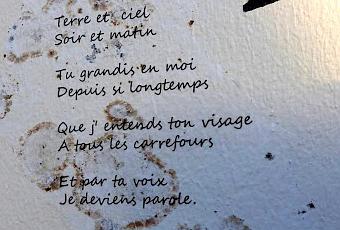 Terre et ciel
Soir et matin
Tu grandis en moi
Depuis si longtemps
Que j' entends ton visage
A tous les carrefours
Et par ta voix
Je deviens parole.